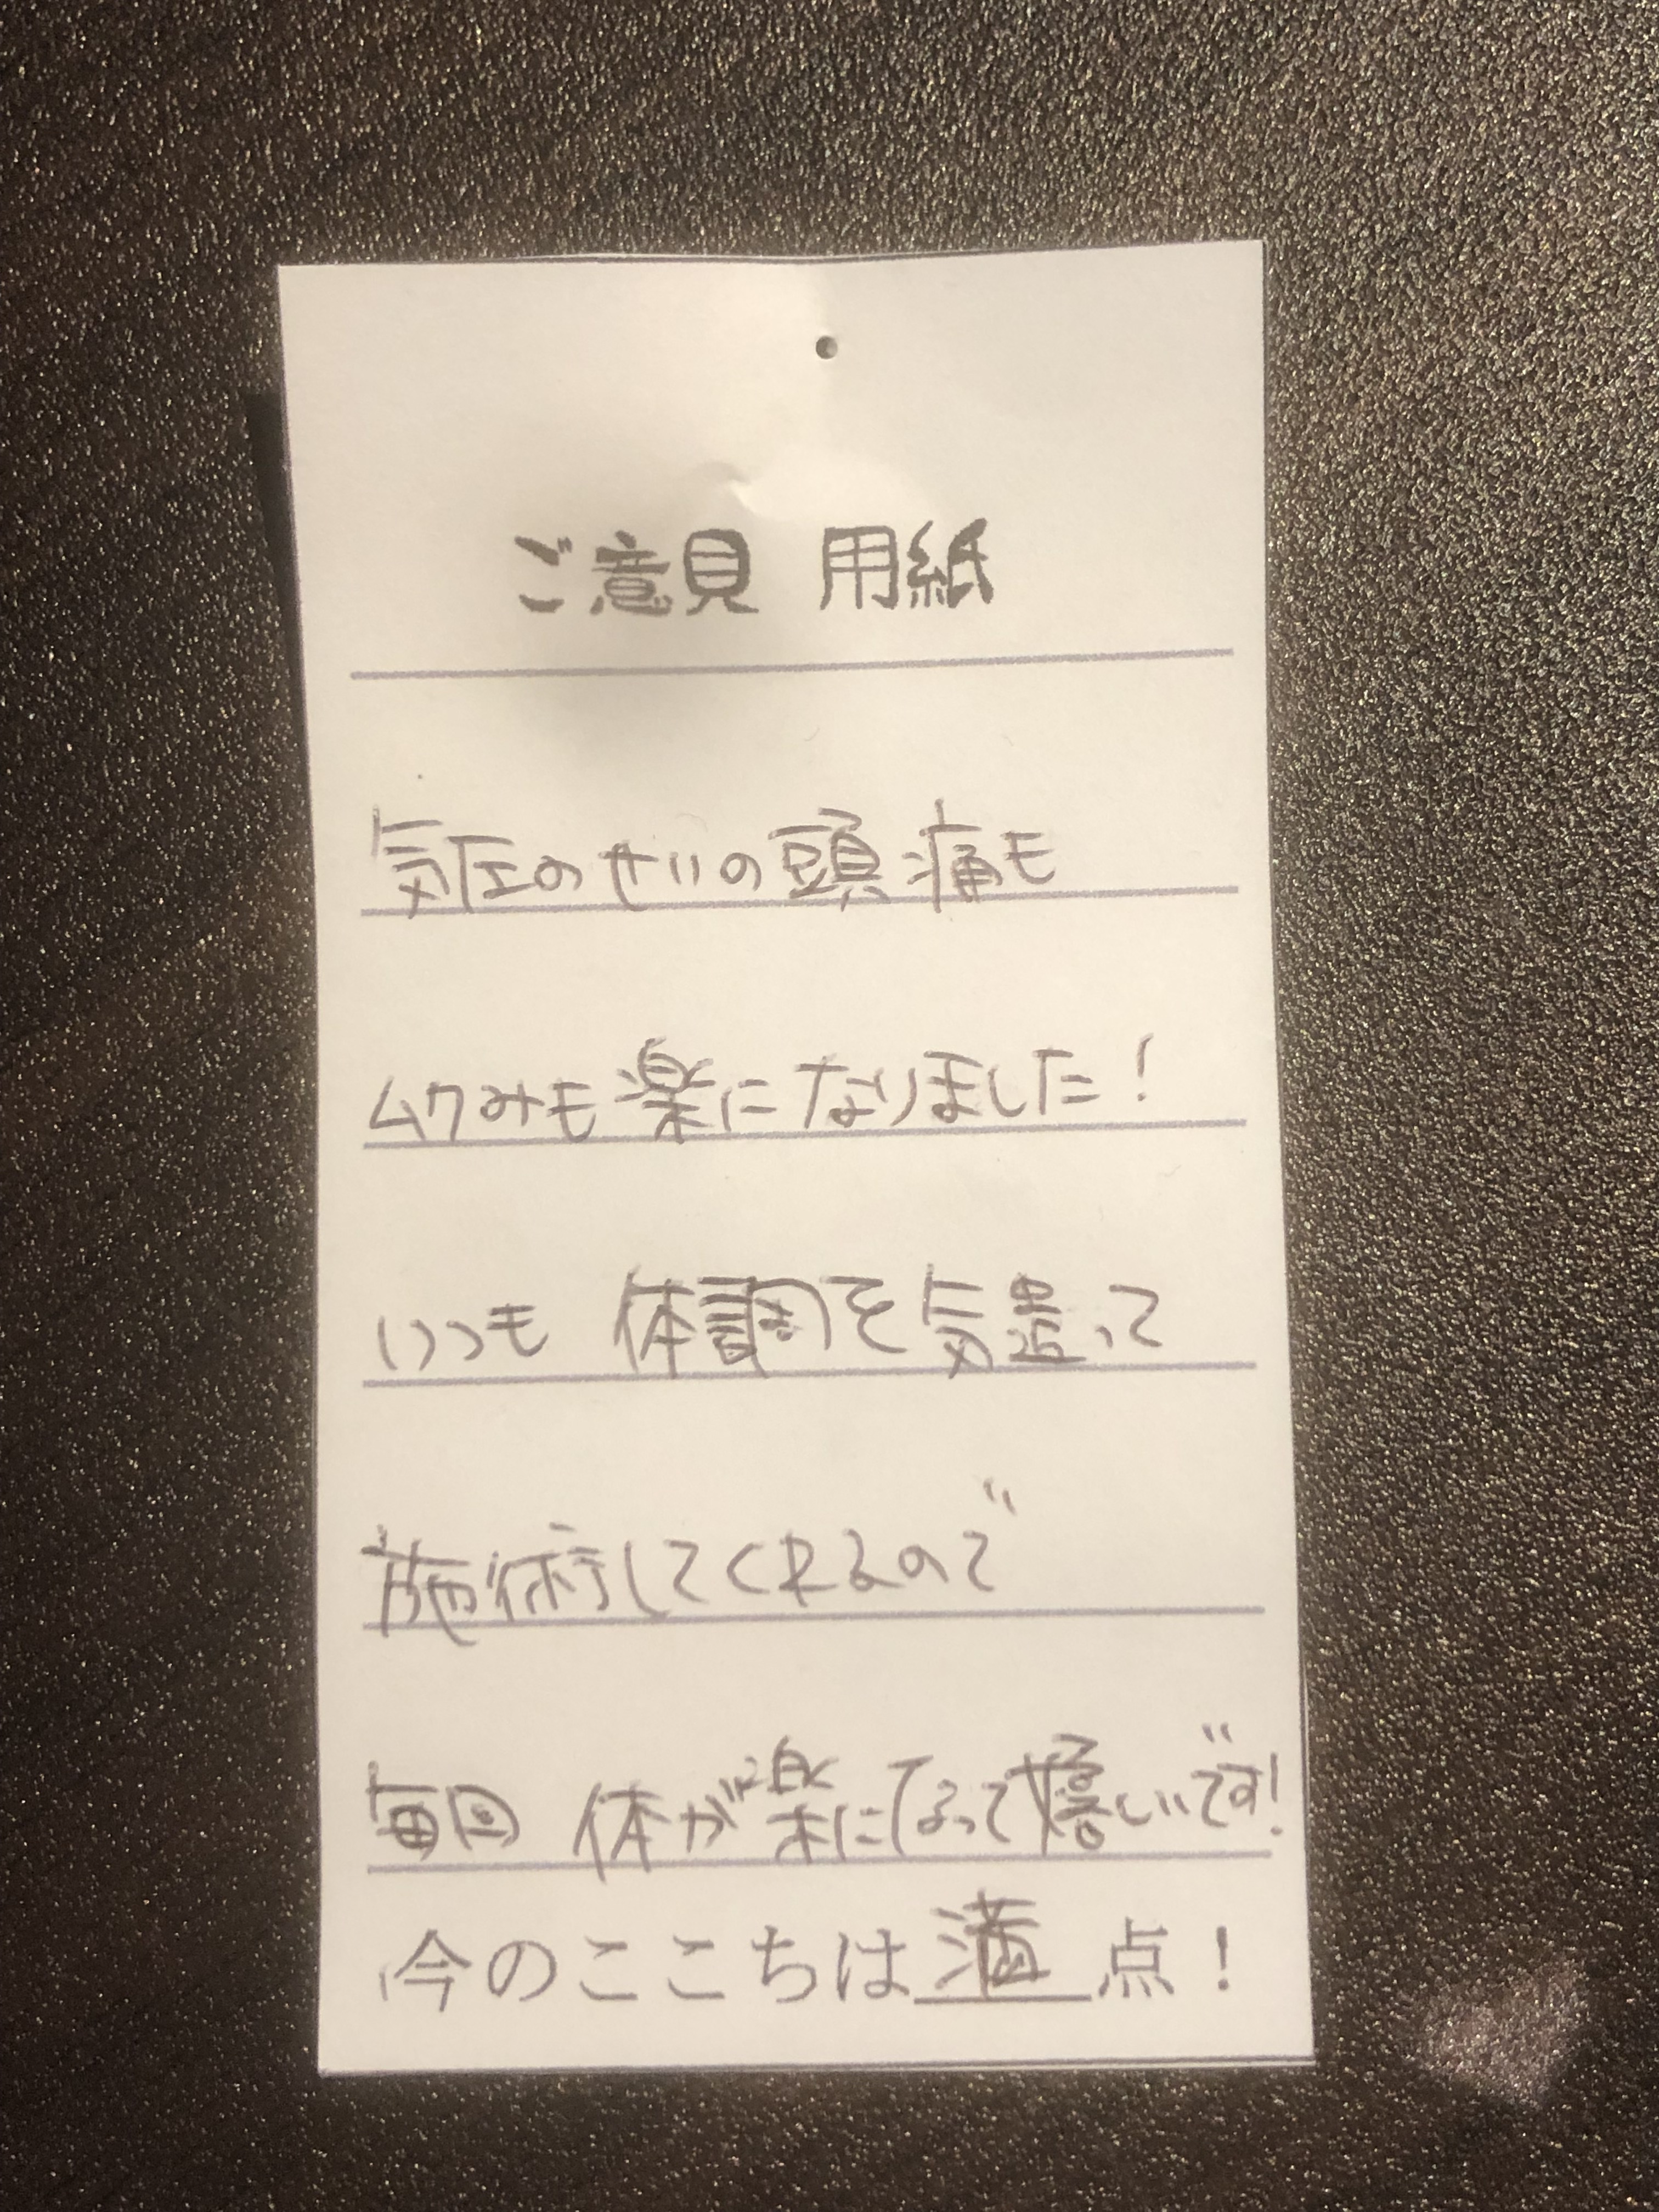 ご意見 用紙
気圧のせいの頭痛も
ムクみも楽になりました！
いつも 体調を気遣って
施術してくれるので
毎回 体が楽になって嬉しいです！
今のここちは満点！